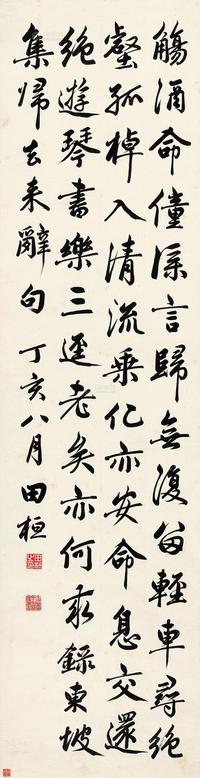 觴酒命僮僕言歸無復留輕車尋絶
壑孤棹入清流乘化亦安命息交還
絶遊琴書樂三逕老矣亦何求錄東坡
集歸去来辭句 丁亥八月田桓